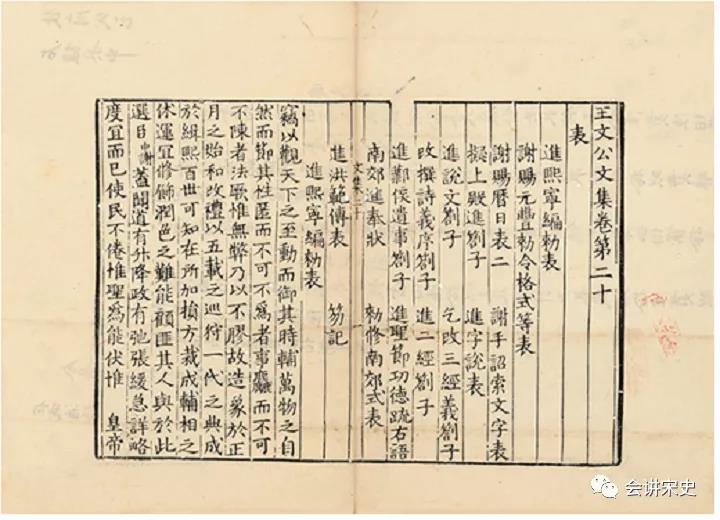 王文公文集卷第二十
表
進熙寧編勑表
謝賜元豐勑令格式等表
謝賜曆日表二 謝手詔索文字表
擬上殿進劄子 進字說表
進說文劄子 乞改三經義劄子
改撰詩義序劄子 進二經劄子
進鄴侯遺事劄子 進聖節功德疏右語
南郊進奉狀 勑修南郊式表
進洪範傳表 笏記
文集二十 一
進熙寧編勑表
竊以觀天下之至動而御其時輔萬物之自
然而節其性匿而不可不爲者事麤而不可
不陳者法厥惟無弊乃以不膠故造象於正
月之始和改禮以五載之巡狩一代之典成
於緝熙百世可知在所加損方裁成輔相之
休運宜修飾潤色之難能顧匪其人與於此
選日中謝蓋聞道有升降政有弛張緩急詳略
度宜而已使民不倦惟聖爲能伏惟 皇帝
会讲宋史